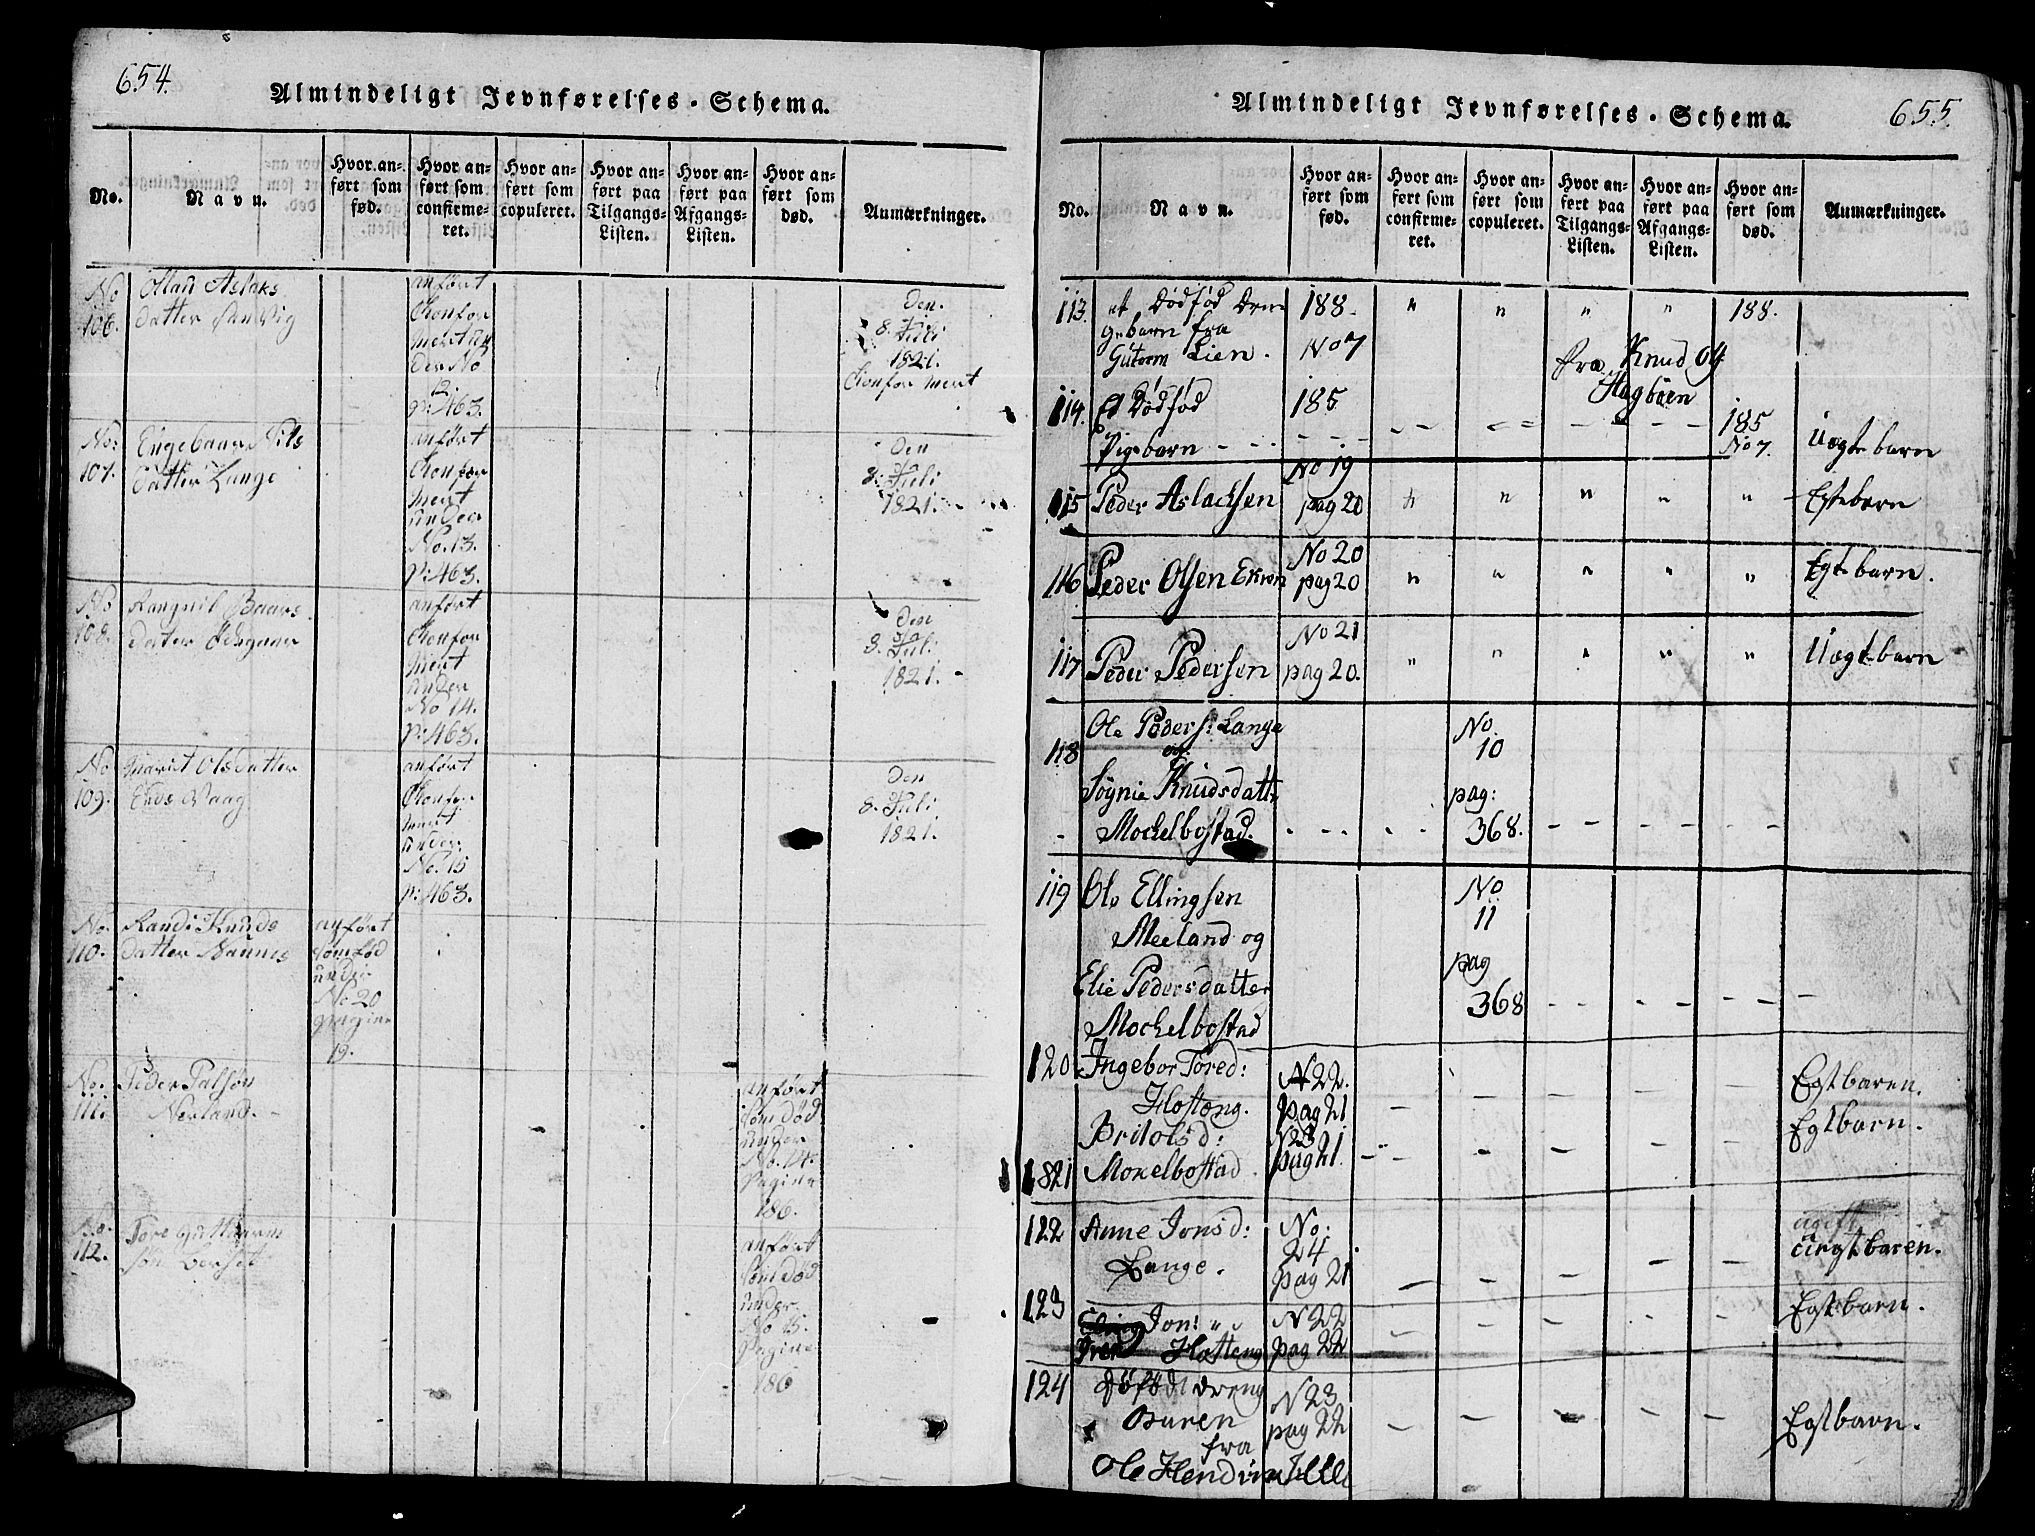 654.
Almindeligt Jevnførelses-Schema.
No.
Navn.
Hvor an-
ført som
fød.
Hvor an-
ført som
confirme-
ret.
Hvor an-
ført som
copuleret.
Hvor an-
ført paa
Tilgangs-
Listen.
Hvor an-
ført paa
Afgangs-
Listen.
Hvor an-
ført som
død.
Anmærkninger.
No
106.
Aslaks
Datter
anført
No
12.
p: 463.
Den
8. Juli
1821.
No:
107.
Engebaar Nils
Datter Lange
anført
under
No. 13.
p: 463.
Den
8. Juli
1821.
No
108.
Rangnil Baars
Datter
anført
under
No 14.
p: 463.
Den
8. Juli
1821.
No
109.
Marit Ols Datter
anført
under
No. 15
p: 463.
Den
8. Juli
1821.
No.
110.
Randi Knuds
Datter Naunes
anført
som fød
under
No 20
pagina
19.
No.
111.
Peder Palsøn
Nerland.
anført
som død
under
No. 14.
Pagina
186.
No.
112.
Tore
søn Berset
anført
som død
under
No 15.
Pagina
186
655.
Almindeligt Jevnførelses-Schema.
No.
Navn.
Hvor an-
ført som
fød.
Hvor an-
ført som
confirme-
ret.
Hvor an-
ført som
copuleret.
Hvor an-
ført paa
Tilgangs-
Listen.
Hvor an-
ført paa
Afgangs-
Listen.
Hvor an-
ført som
død.
Anmærkninger.
113.
et Dødfød Dren
gebarn fra
Gutorm Lien.
188.
No 7
" " " "
188.
fra Knud og
Hagbøen
114.
Et Dødfød
Pigebarn
185
185
No 7.
Uægte barn
115
Peder Aslachsen
No 19
pag 20
" " " " "
Egtebarn
116
Peder Olsen Ekren
No 20
pag 20
" " " " "
Egte barn.
117
Peder Pedersen
No 21
pag 20.
" " " " "
Uægtebarn
118
Ole Peders: Lange
og
Søgnie Knudsdatt:
Mochelbostad.
No.
10
pag:
368.
119
Ole Ellingsen
Meeland og
Elie Pedersdatter
Mochelbostad
No
11
pag
368
120
Ingebor Tored:
Hosteng.
N 22.
pag 21
Egtbaren.
1821
Britolsd:
Moxelbostad.
N 23
pag 21.
Egtbarn.
122
Anne Jonsd:
Lange.
No:
24
pag 21
uegtbaren.
123
Jons
Iver Hosteng
N 22
pag 22
Egtbarn.
124
Døfød dreng
Buren
fra
Ole
N 23
pag 22
Egtbarn.